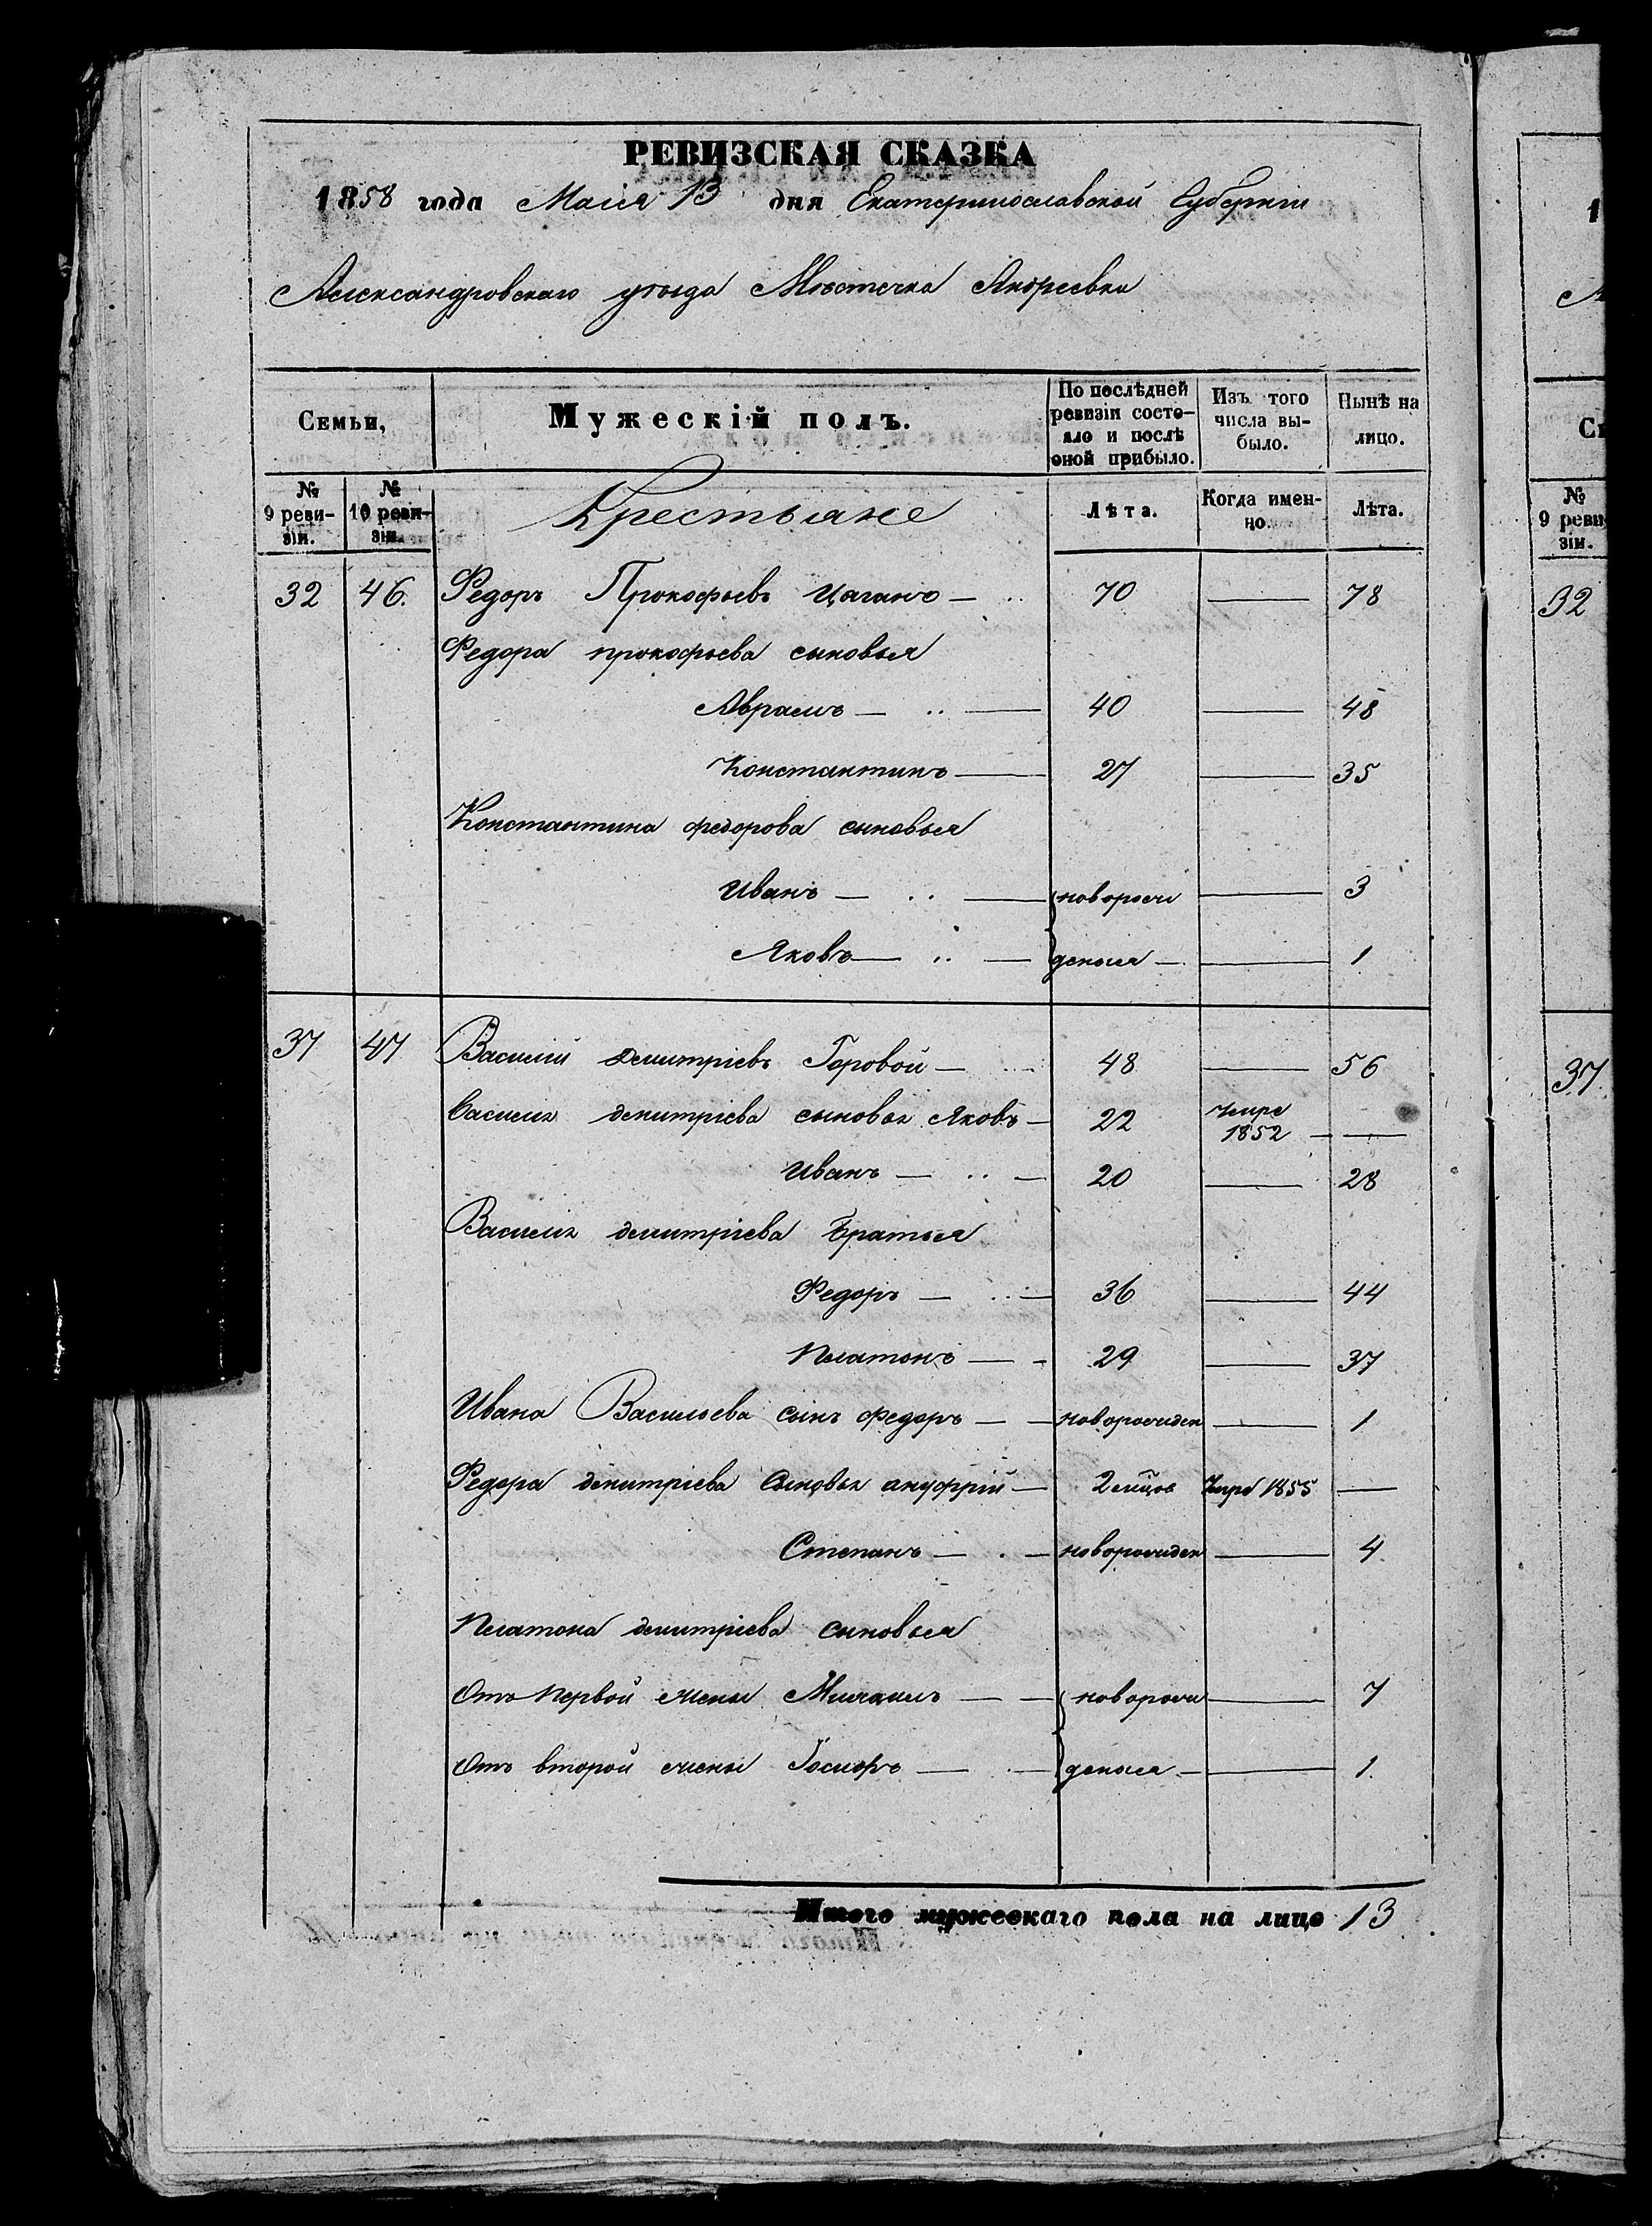 РЕВИЗСКАЯ СКАЗКА
1858 года Маія 13 дня Екатеринославской Губерніи
Александровскаго уѣзда Мѣстечка Андреевки
Семьи,
Мужескій полъ.
По послѣдней ревизіи состояло и послѣ оной прибыло.
Изъ того числа выбыло.
Нынѣ на лицо.
№ 9 ревизіи.
№ 10 ревизіи.
Крестьяне
Лѣта.
Когда именно.
Лѣта.
32 46. Федоръ Прокофьевъ Цаганъ — 70 — 78
Федора прокофьева сыновья
Аврамъ — 40 — 48
Константинъ — 27 — 35
Константина федорова сыновья
Иванъ — новорож — 3
Яковъ — деныя — 1
37 47 Василій Демитріевъ Горовой — 48 — 56
Василия демитріева сыновья Яковъ — 22 умре 1852 —
Иванъ — 20 — 28
Василия демитріева братья
Федоръ — 36 — 44
Платонъ — 29 — 37
Ивана Васильева сынъ федоръ — новорожден — 1
Федора демитріева сыновья ануфрій — 2 мѣцов Умре 1855 —
Степанъ — новорожден — 4
Платона демитріева сыновья
Отъ первой жены Михаилъ — новорож — 7
Отъ второй жены Іосифъ — деныя — 1.
Итого мужескаго пола на лицо 13
1
С
№ 9 реви зіи.
32
37